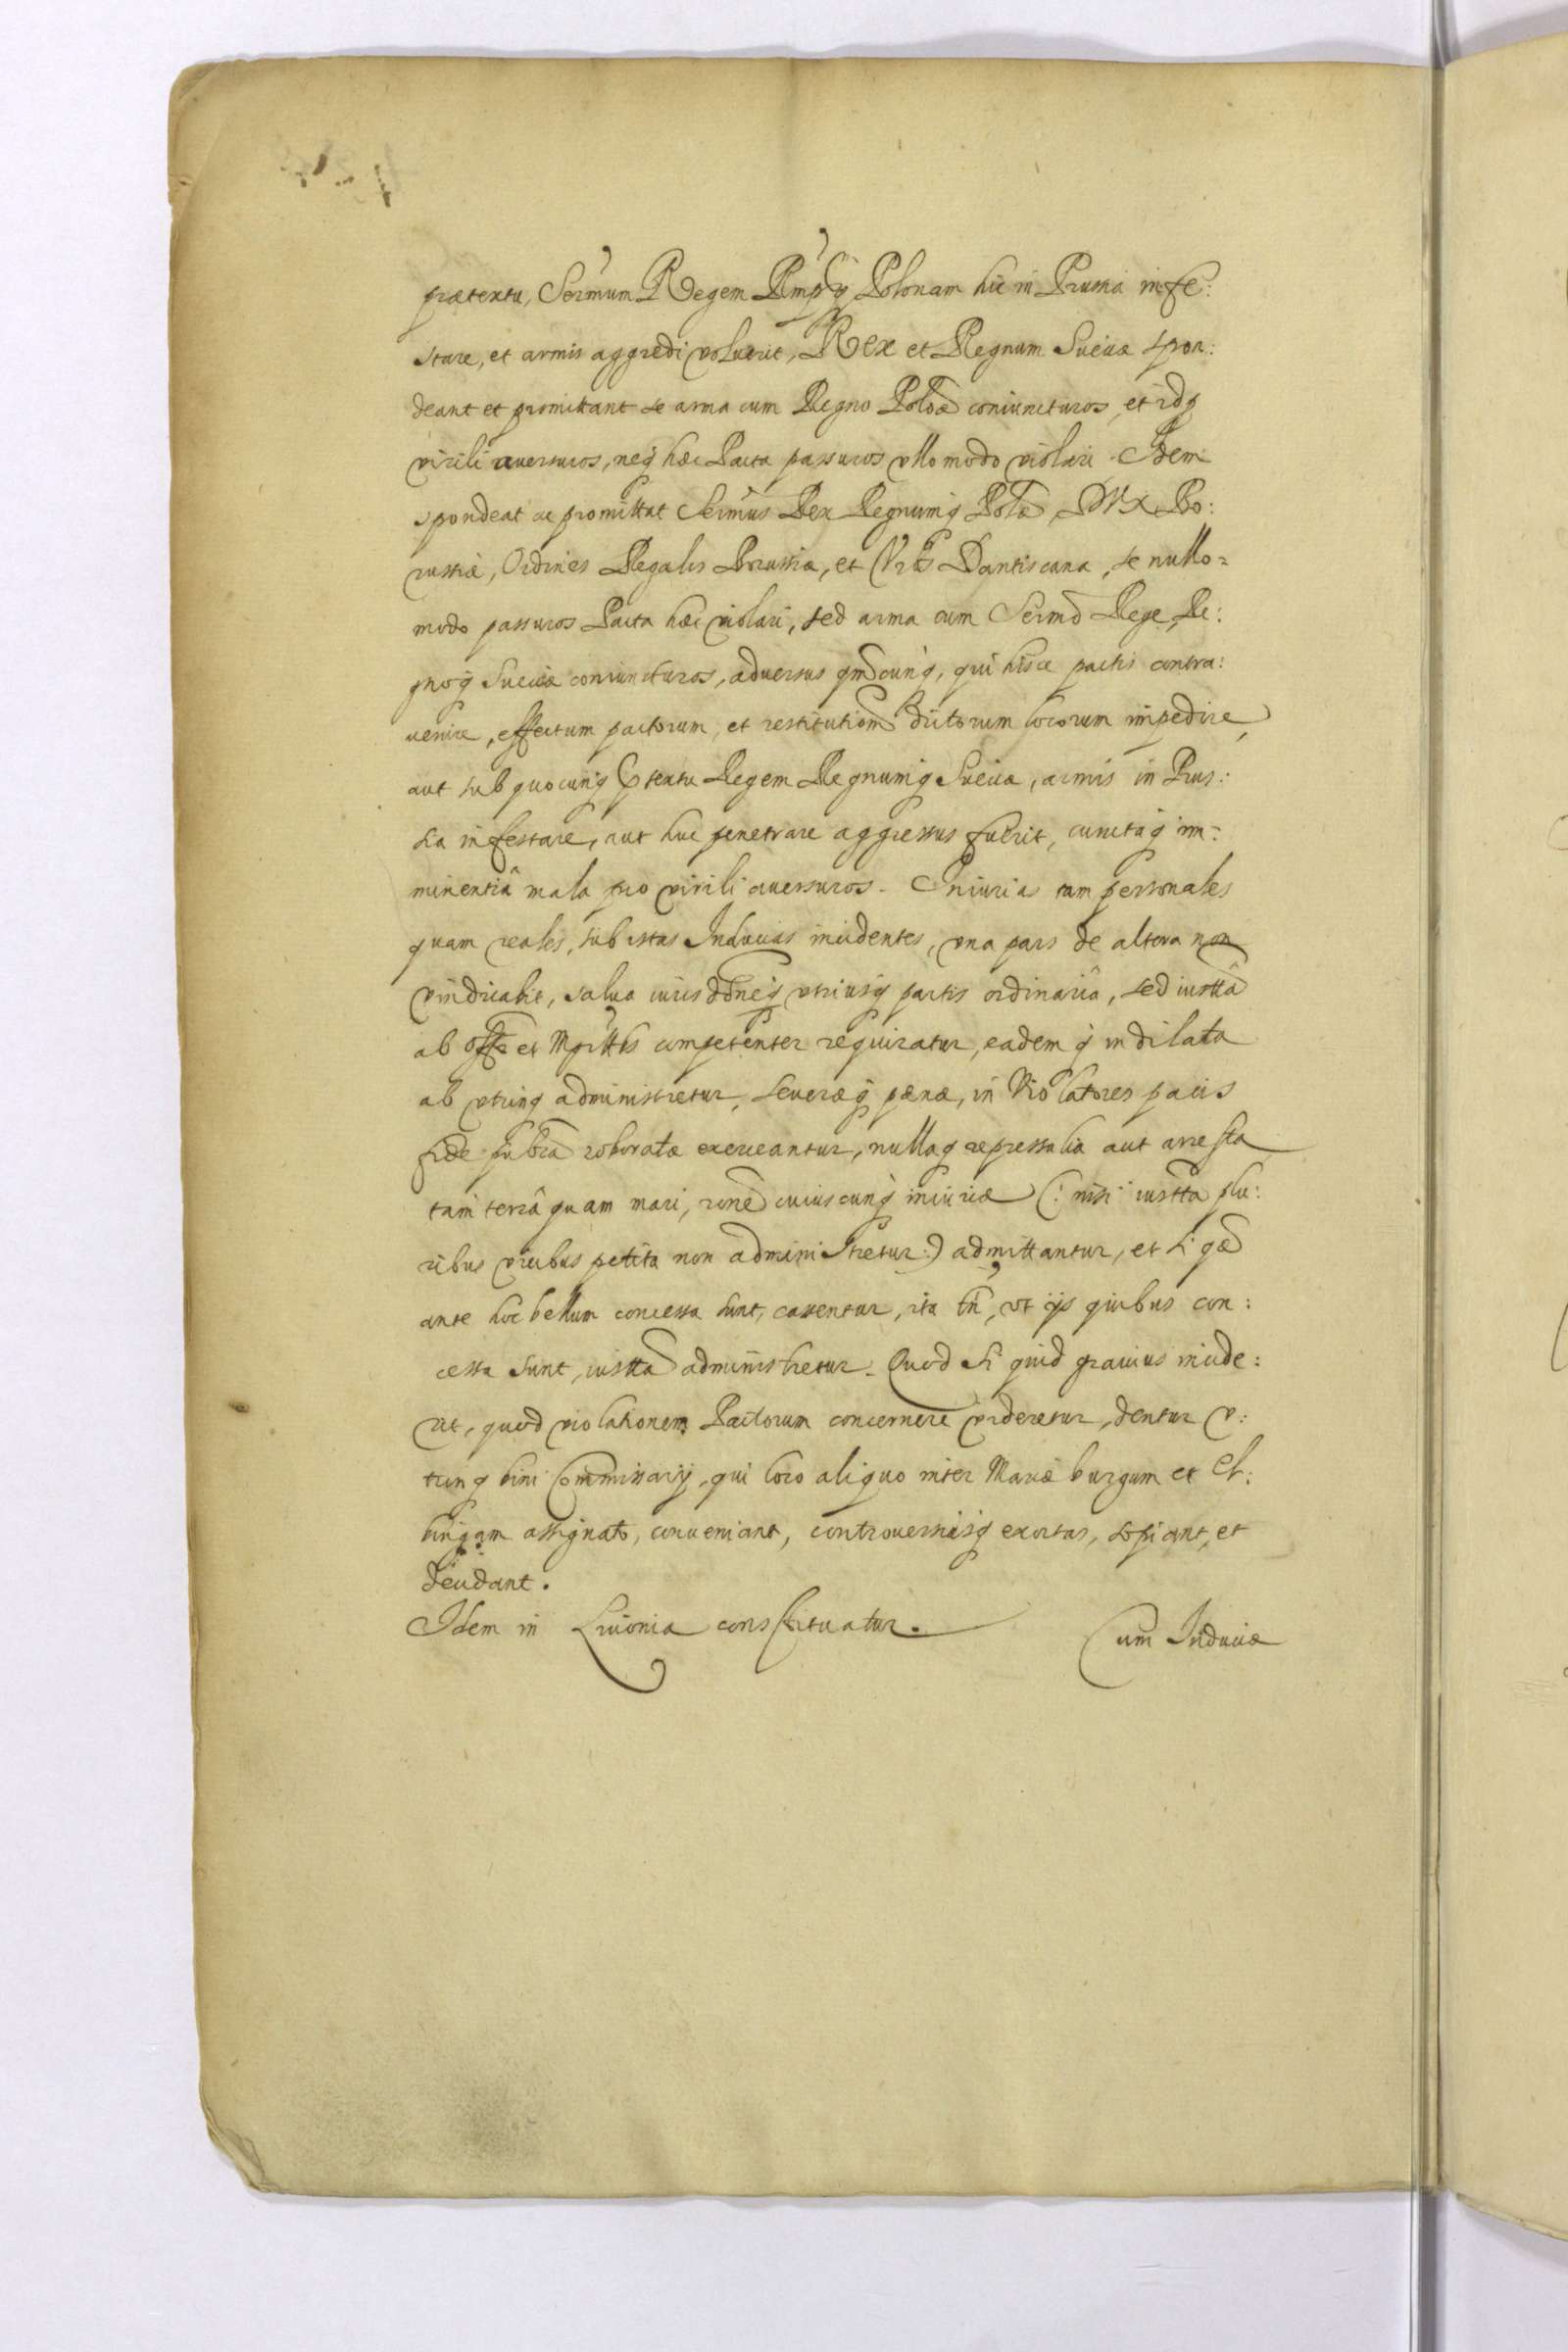 prætextu, Sermum Regem Rmpq Polonam hic in Prussia infe:
stare, et armis aggredi voluerit, Rex et Regnum Sueciæ spon:
deant et promittant se arma cum Regno Polõæ coniuncturos, et id p
virili auersuros, neq hæc Pacta passuros vllo modo violari. Idem
spondeat ac promittat Sermus Rex Regnumq Polæ, DVX Bo:
russiæ, Ordines Regalis Prussiæ, et Vrbs Dantiscana, se nullo=
modo passuros Pacta hæc violari, sed arma cum Sermo Rege, Re:
gnoq Sueciæ coniuncturos, aduersus qmcunq, qui hisce pactis contra:
uenire, effectum pactorum, et restitutiom dictorum locorum impedire,
aut sub quocunq ptextu Regem Regnumq Sueciæ, armis in Prus:
sia infestare, aut huc penetrare aggressus fuerit, cunctaq im:
minentiâ mala pro virili auersuros. Iniurias tam personales
quam reales, sub istas Inducias incidentes, vna pars de altera non
vindicabit, salua iurisdõneq vtriusq partis ordinariâ, sed iusttâ
ab offê et Mgrttis competenter requiratur, eademq indilata
ab vtrinq administretur, seueræq pænæ, in Violatores pacis
fide pubca roboratæ exerceantur, nullaq repressalia aut arresta
tam terrâ quam mari, rone cuiuscunq iniuriæ (: nisi iustta plu:
ribus vicibus petita non administretur :) admittantur, et si qæ
ante hoc bellum concessa sunt, cassentur, ita tñ, vt ijs quibus con:
cessa sunt, iustta administretur. Quod si quid grauius incide:
rit, quod violationem Pactorum concernere videretur, dentur v:
trinq bini Commissarij, qui loco aliquo inter Mariæburgum et El:
bingam assignato, conueniant, controuersiasq exortas, sopiant, et
decidant.
Idem in Liuonia constituatur.
Cum Induciæ